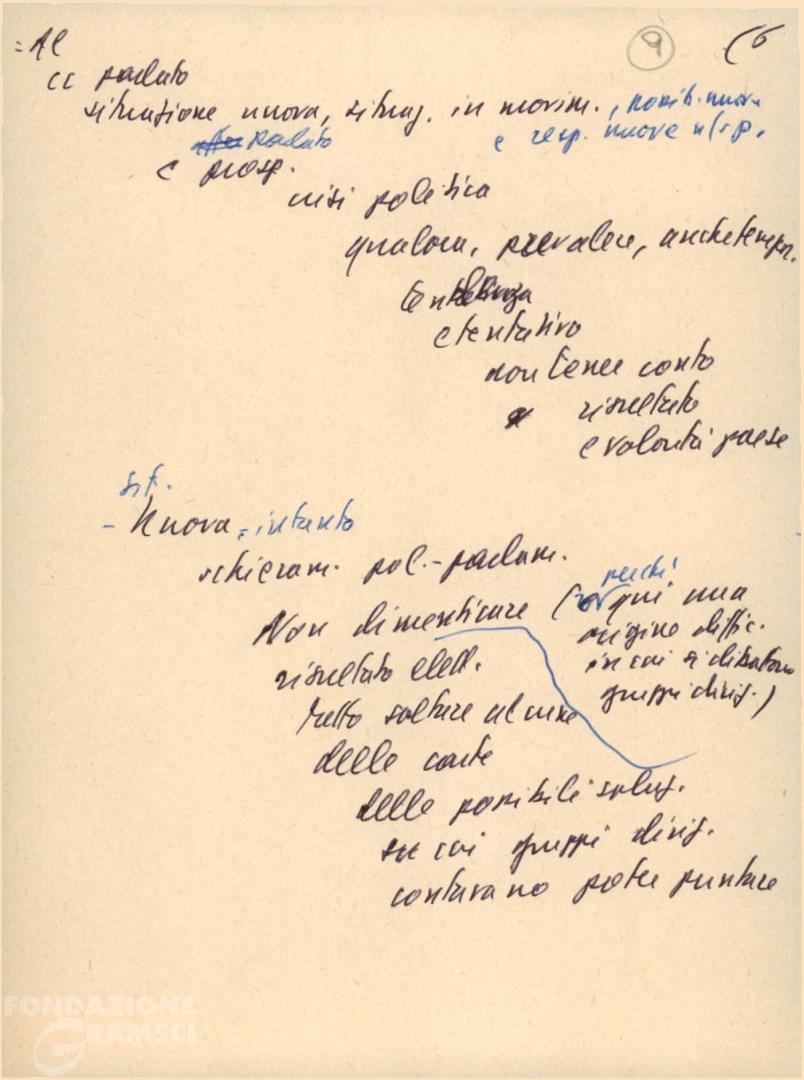 = Al
9
(6
CC parlato
situazione nuova, situaz. in movim., possib. nuove
e resp. nuove
parlato
e prosp.
crisi politica
qualora, prevalere, anche tempor.
tendenza
e tentativo
non tener conto
risultato
e volontà paese
sit.
- Nuova = intanto
schieram. pol.-parlam.
Non dimenticare (
perché
qui una
origine diffic.
risultato elett.
in cui si dibattono
gruppi dirig.)
fatto saltare alcune
delle carte
delle possibili soluz.
su cui gruppi dirig.
contavano poter puntare
FONDAZIONE
GRAMSCI